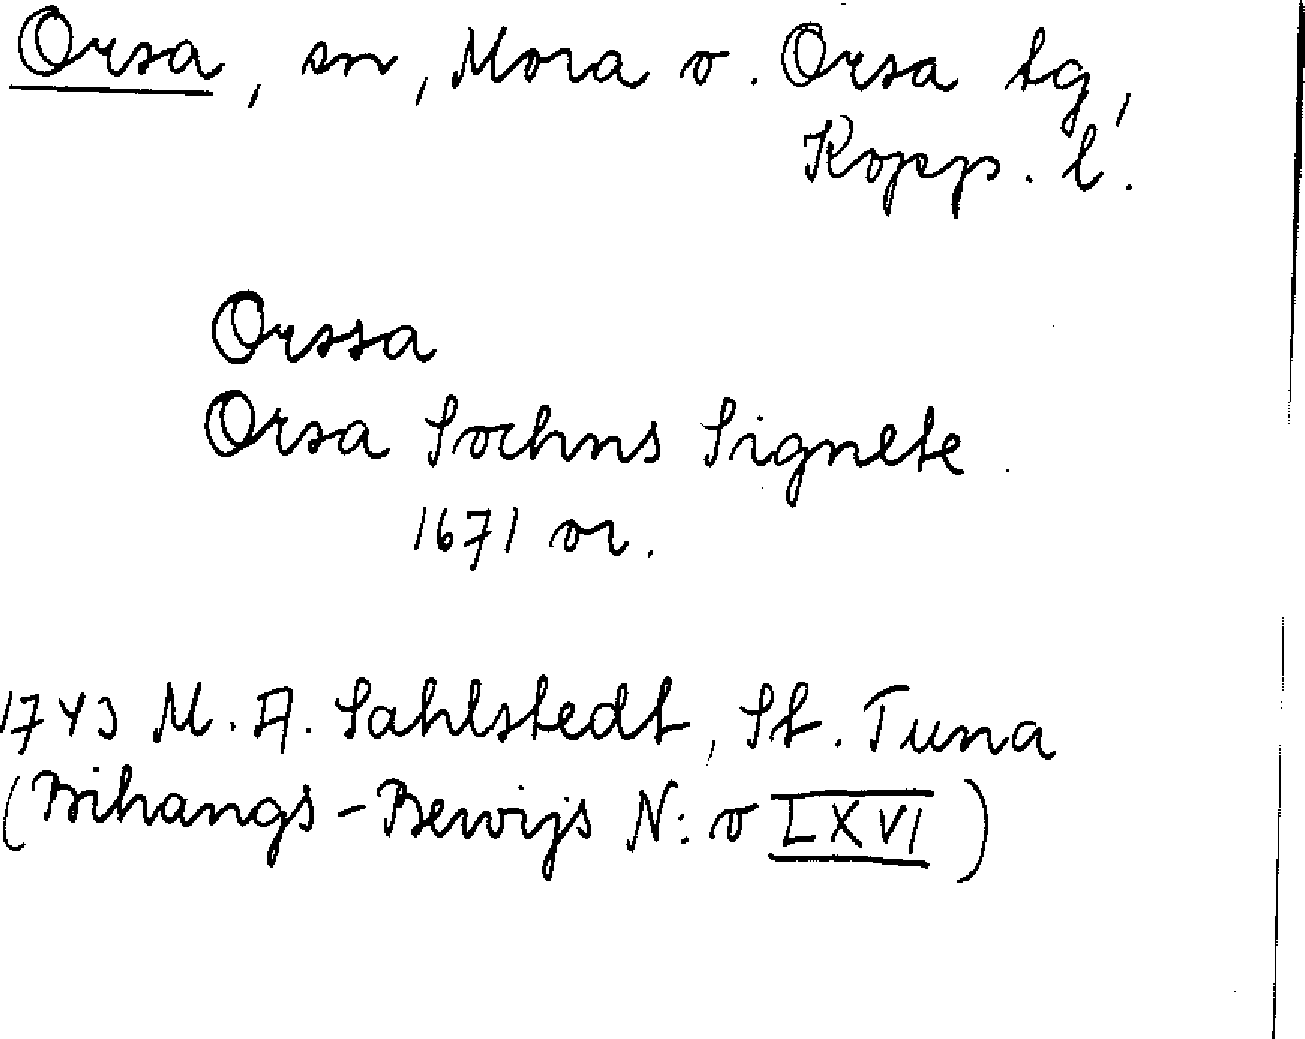 Orsa, sn, Mora o. Orsa tg,
Kopp. l.
Orssa
Orsa Sochns Signete
1671 or.
1743 M. A. Sahlstedt, St. Tuna
(Bihangs-Bewijs N:o LXVI)